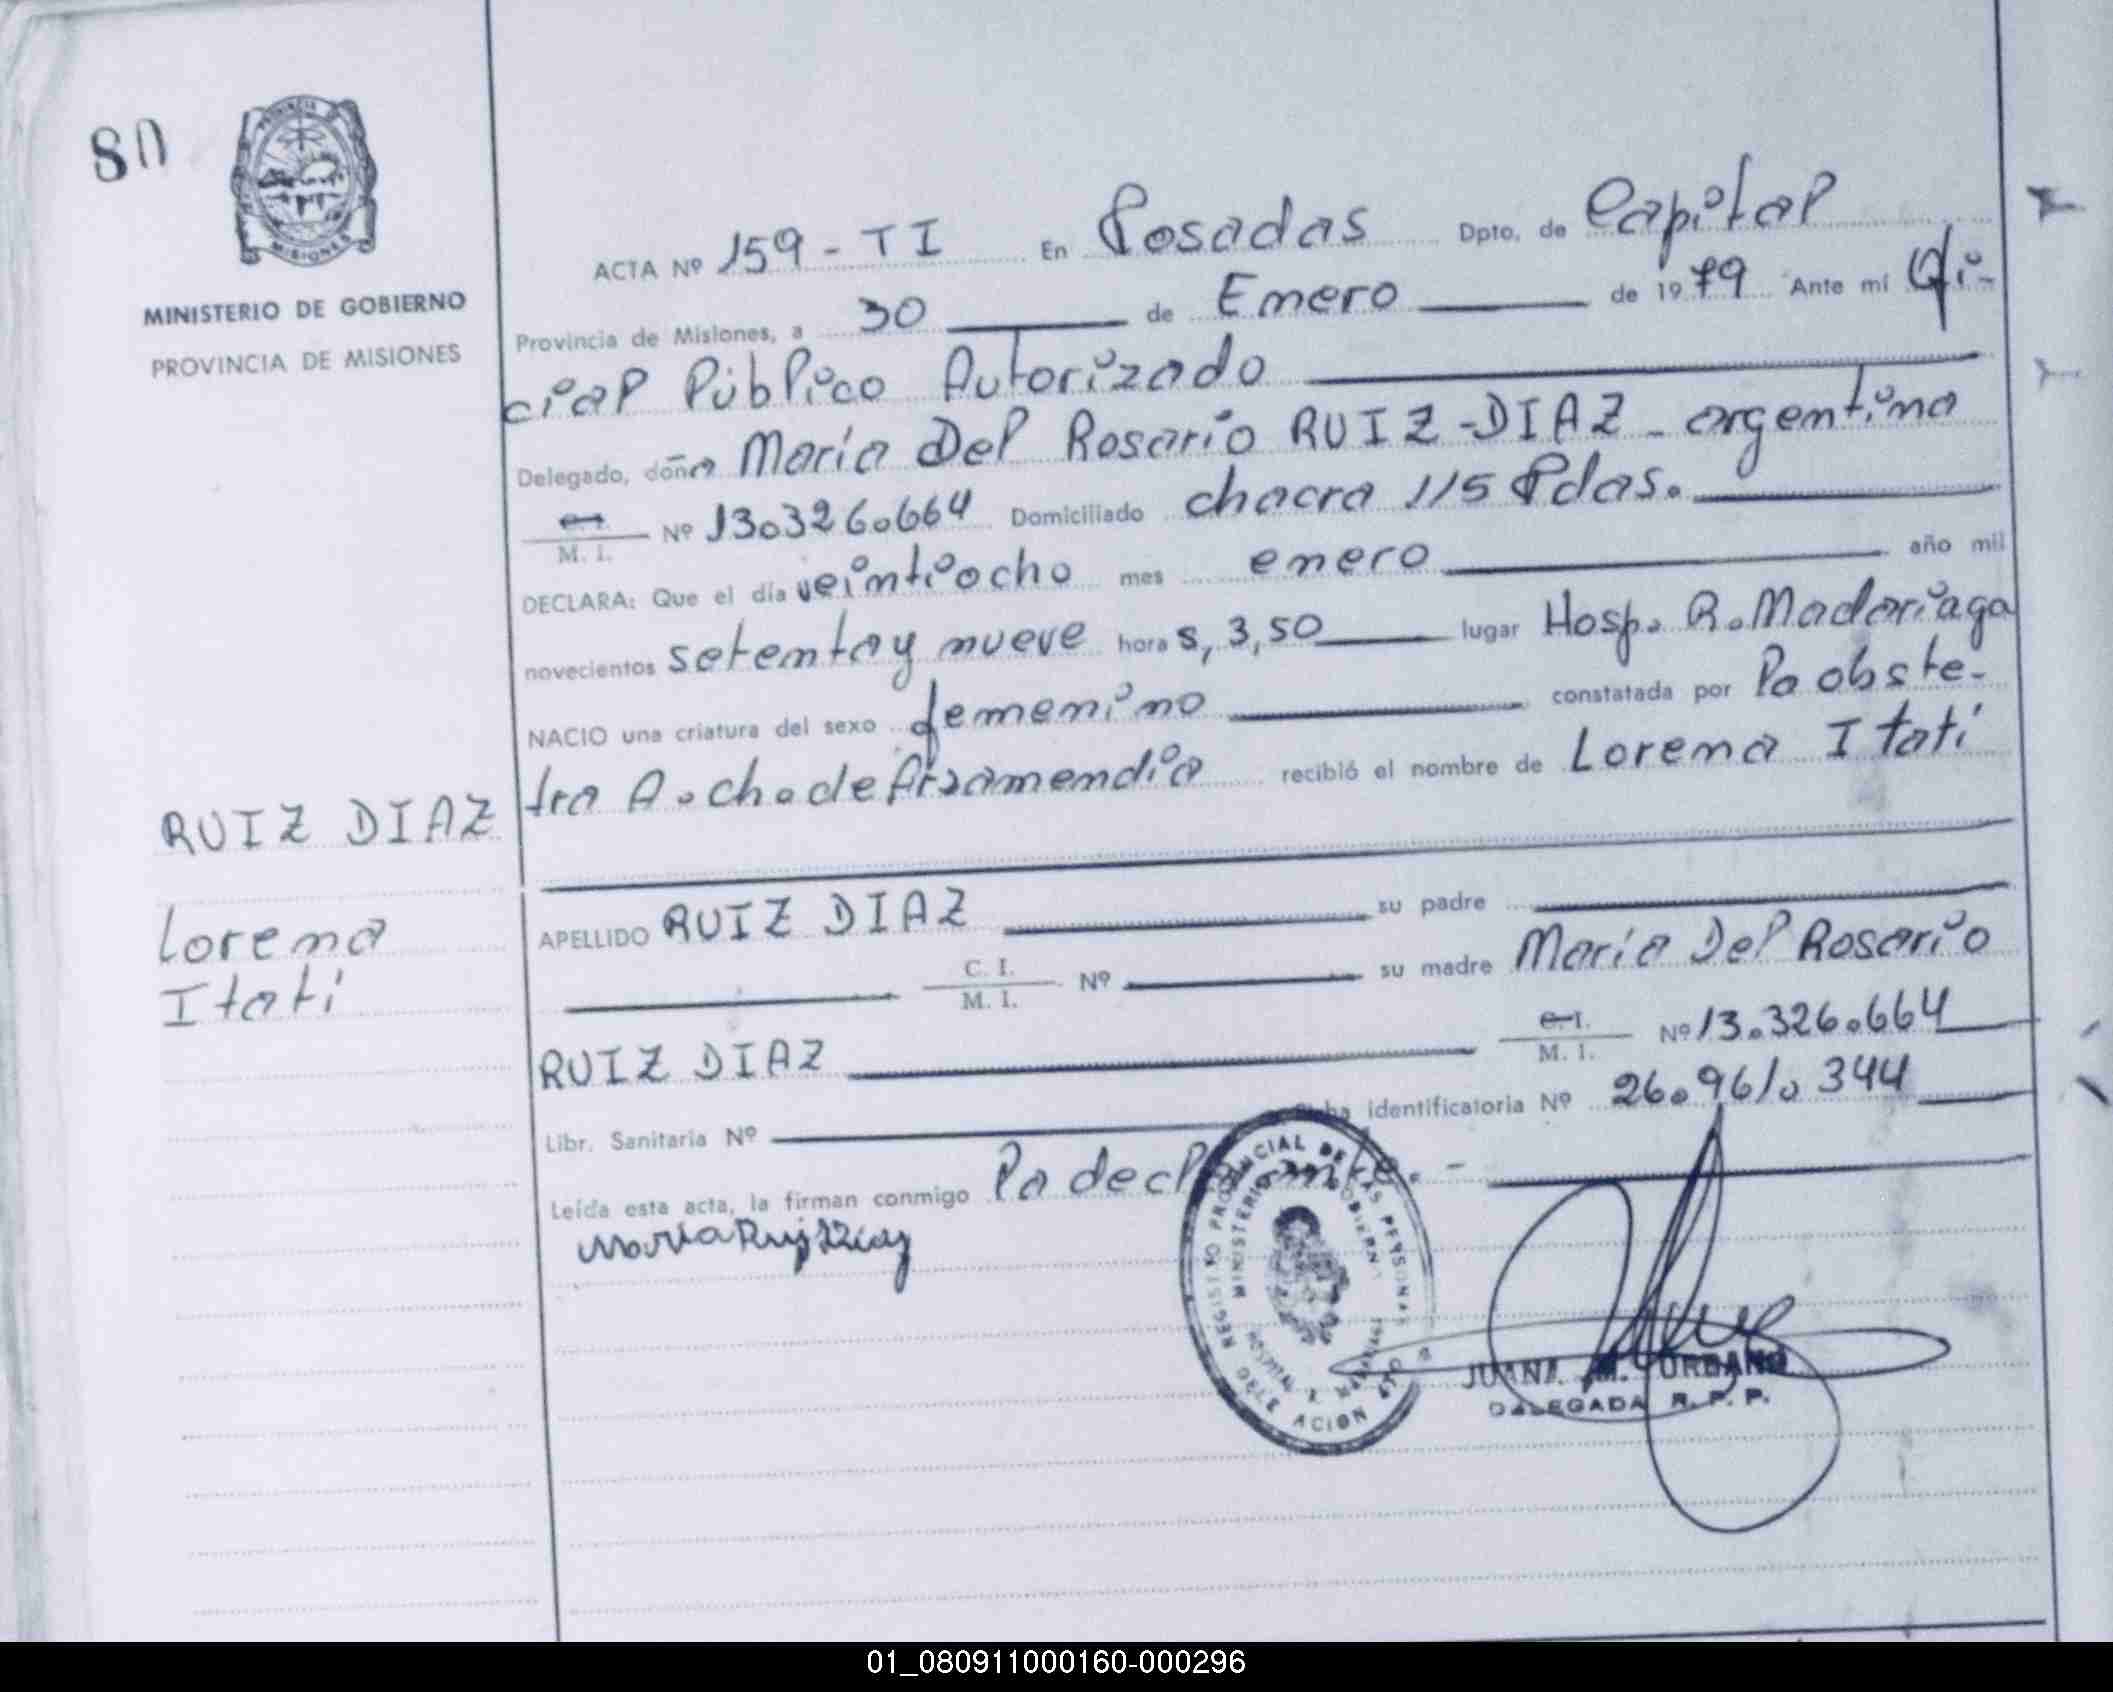 80
PROVINCIA
MISIONES
MINISTERIO DE GOBIERNO
PROVINCIA DE MISIONES
ACTA Nº 159 - TI En Posadas Dpto. de Capital
Provincia de Misiones, a 30 de Enero de 1979 Ante mí Ofi-
cial Público Autorizado
Delegado, doña María Del Rosario RUIZ-DIAZ - argentina
M. I. Nº 13.326.664 Domiciliado chacra 115 Pdas.
DECLARA: Que el día veintiocho mes enero año mil
novecientos setenta y nueve hora s, 3,50 lugar Hosp. R. Madariaga
NACIO una criatura del sexo femenino constatada por la obste-
tra A. ch. de Arzamendia recibió el nombre de Lorena Itatí
RUIZ DIAZ
Lorena
Itatí
APELLIDO RUIZ DIAZ su padre
C. I.
M. I. Nº su madre María Del Rosario
RUIZ DIAZ C. I.
M. I. Nº 13.326.664
Libr. Sanitaria Nº Ficha identificatoria Nº 26.961.344
Leída esta acta, la firman conmigo la declarante. -
Maria Ruiz Diaz
JUANA M. URBANO
DELEGADA R. P. P.
01_080911000160-000296